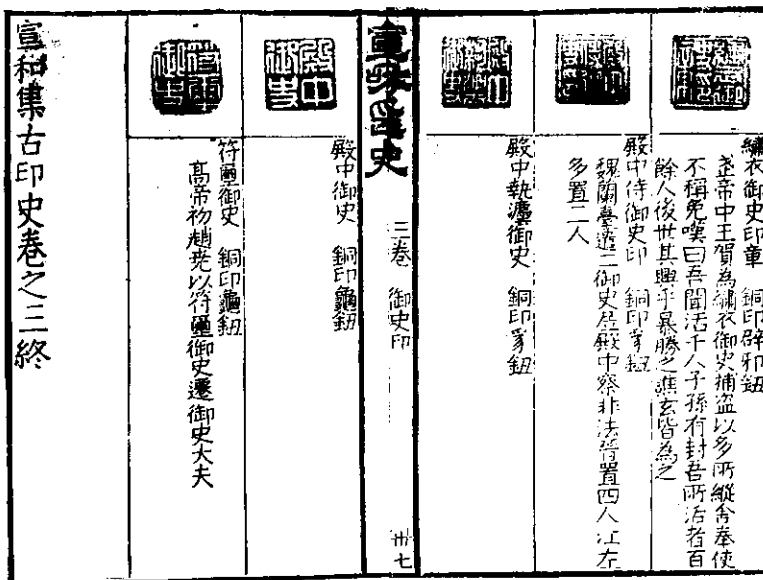 繡衣御史印章　銅印辟邪鈕
武帝中王賀為繡衣御史捕盜以多所縱舍奉使
不稱免嘆曰吾聞活千人子孫有封吾所活者百
餘人後世其興乎暴勝之譙玄皆為之
殿中侍御史印　銅印豸鈕
魏蘭臺遣二御史居殿中察非法晉置四人江左
多置二人
殿中執灋御史　銅印豸鈕
宣和印史
三卷　御史印
卅七
殿中御史
殿中御史　銅印龜鈕
符璽御史
符璽御史　銅印龜鈕
高帝初趙堯以符璽御史遷御史大夫
宣和集古印史卷之三終